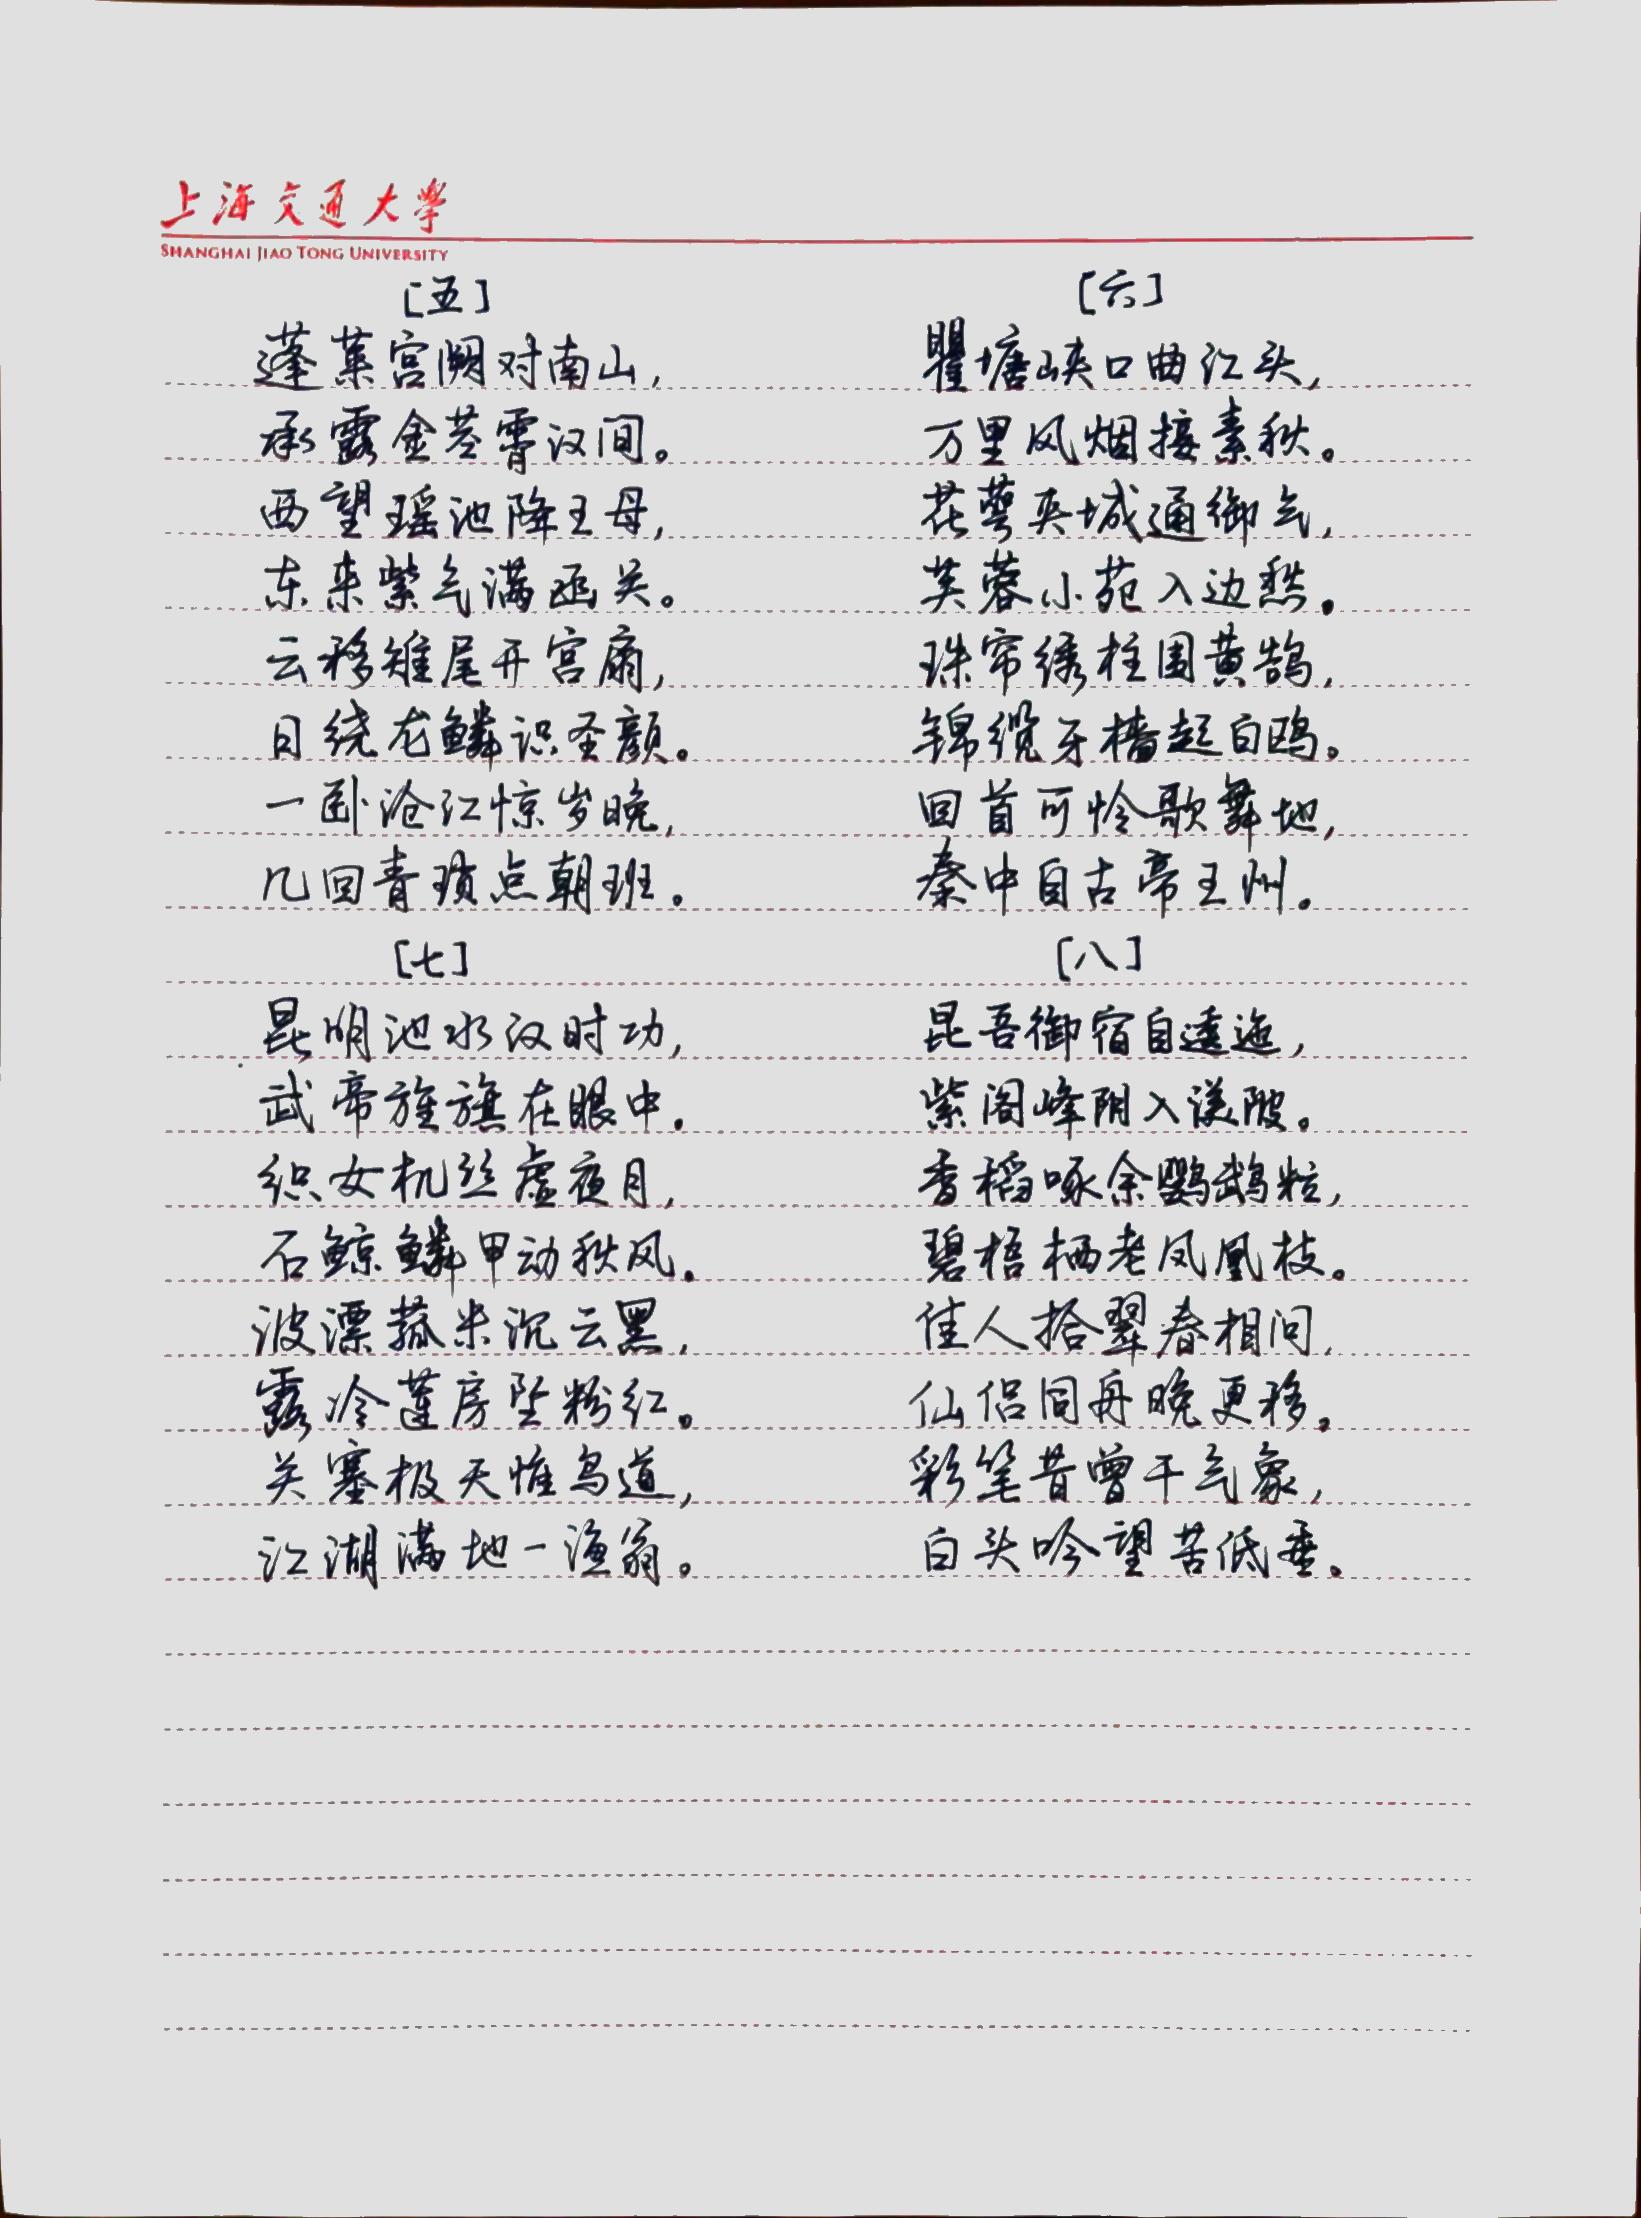 上海交通大学
SHANGHAI JIAO TONG UNIVERSITY
[五]
蓬莱宫阙对南山，
承露金茎霄汉间。
西望瑶池降王母，
东来紫气满函关。
云移雉尾开宫扇，
日绕龙鳞识圣颜。
一卧沧江惊岁晚，
几回青琐点朝班。
[六]
瞿塘峡口曲江头，
万里风烟接素秋。
花萼夹城通御气，
芙蓉小苑入边愁。
珠帘绣柱围黄鹄，
锦缆牙樯起白鸥。
回首可怜歌舞地，
秦中自古帝王州。
[七]
昆明池水汉时功，
武帝旌旗在眼中。
织女机丝虚夜月，
石鲸鳞甲动秋风。
波漂菰米沉云黑，
露冷莲房坠粉红。
关塞极天惟鸟道，
江湖满地一渔翁。
[八]
昆吾御宿自逶迤，
紫阁峰阴入渼陂。
香稻啄余鹦鹉粒，
碧梧栖老凤凰枝。
佳人拾翠春相问，
仙侣同舟晚更移。
彩笔昔曾干气象，
白头吟望苦低垂。